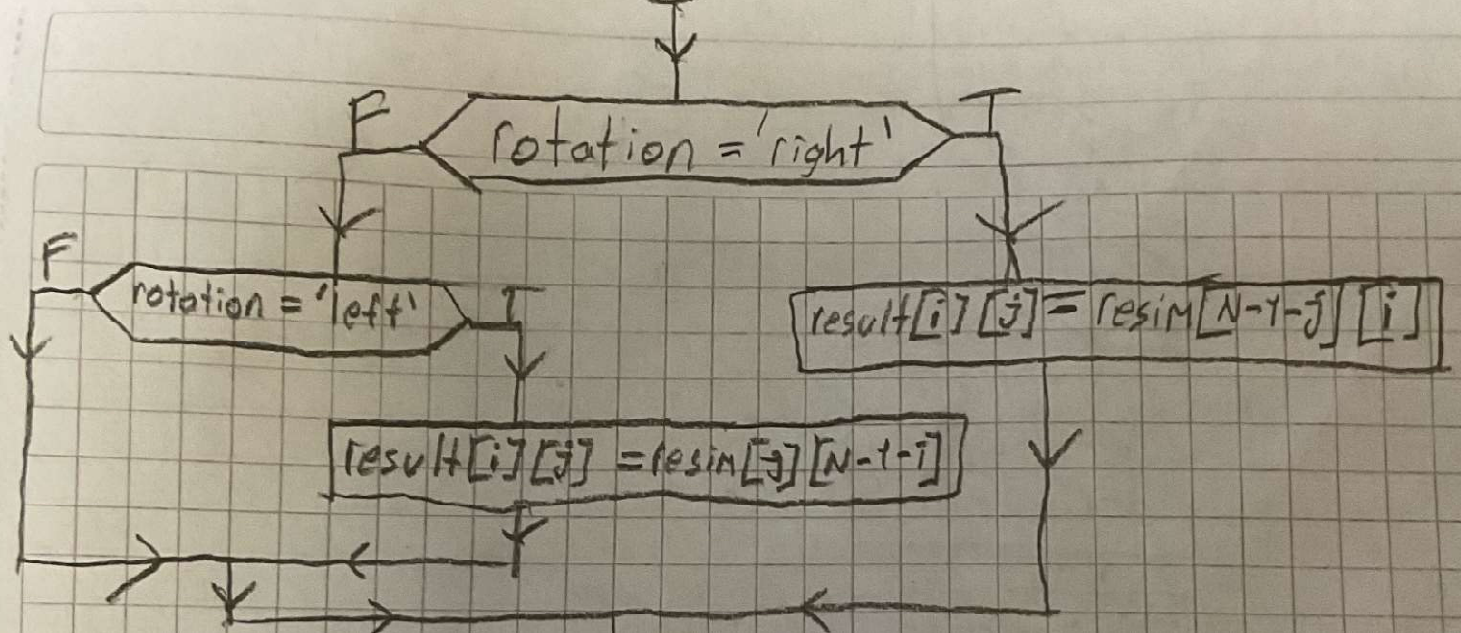 F
rotation = 'right'
T
F
rotation = 'left'
T
result[i][j] = resim[N-1-j][i]
result[i][j] = resim[j][N-1-i]